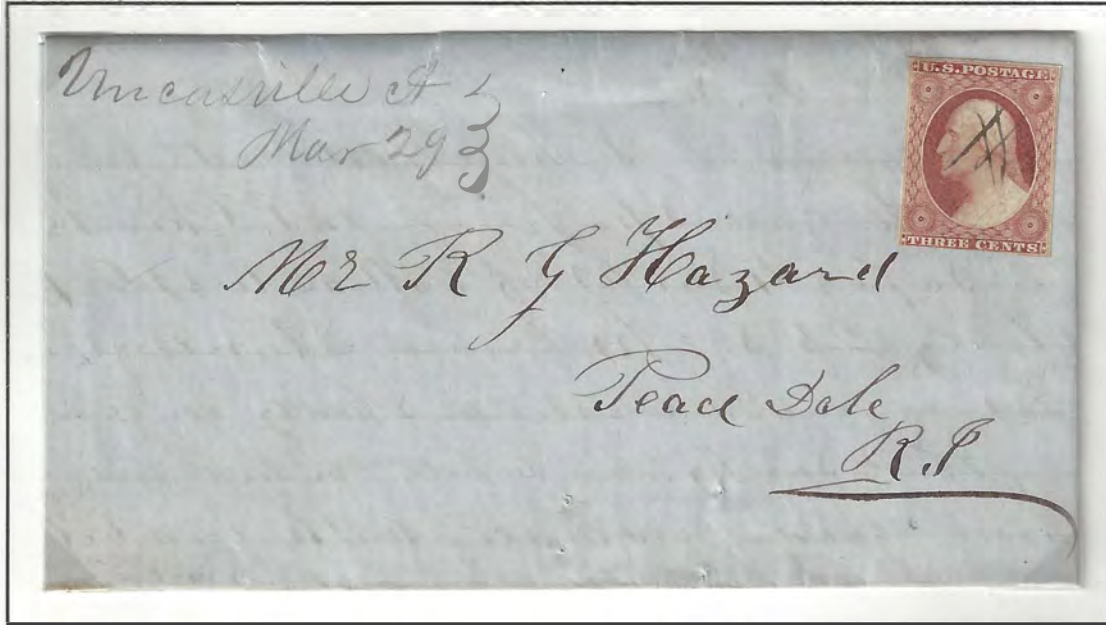 Uncasville Ct
Mar 29 3
U.S. POSTAGE
THREE CENTS
Mr R G Hazard
Peace Dale
R.I